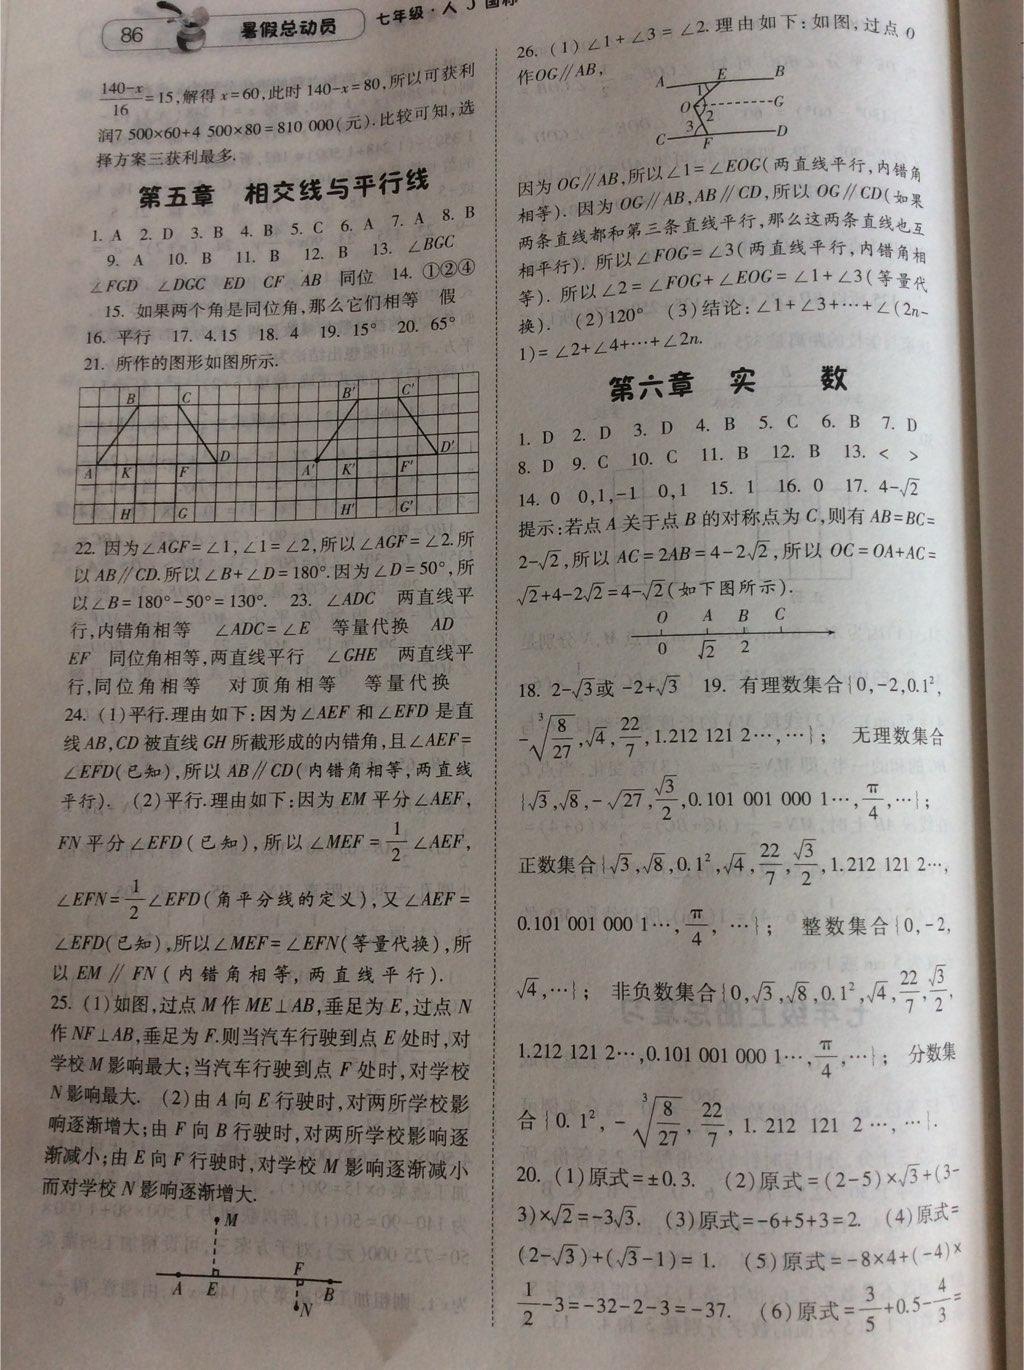 86 暑假总动员 七年级·人J国标
140-x/16=15,解得x=60,此时140-x=80,所以可获利
润7 500×60+4 500×80=810 000(元).比较可知,选
择方案三获利最多.
第五章 相交线与平行线
1. A 2. D 3. B 4. B 5. C 6. A 7. A 8. B
9. A 10. B 11. B 12. B 13. ∠BGC
∠FGD ∠DGC ED CF AB 同位 14. ①②④
15. 如果两个角是同位角,那么它们相等 假
16. 平行 17. 4.15 18. 4 19. 15° 20. 65°
21. 所作的图形如图所示.
B C B′ C′
A K F D A′ K′ F′ D′
H G H′ G′
22. 因为∠AGF=∠1,∠1=∠2,所以∠AGF=∠2.所
以AB∥CD.所以∠B+∠D=180°.因为∠D=50°,所
以∠B=180°-50°=130°. 23. ∠ADC 两直线平
行,内错角相等 ∠ADC=∠E 等量代换 AD
EF 同位角相等,两直线平行 ∠GHE 两直线平
行,同位角相等 对顶角相等 等量代换
24. (1)平行.理由如下:因为∠AEF和∠EFD是直
线AB,CD被直线GH所截形成的内错角,且∠AEF=
∠EFD(已知),所以AB∥CD(内错角相等,两直线
平行). (2)平行.理由如下:因为EM平分∠AEF,
FN平分∠EFD(已知),所以∠MEF=1/2∠AEF,
∠EFN=1/2∠EFD(角平分线的定义),又∠AEF=
∠EFD(已知),所以∠MEF=∠EFN(等量代换),所
以EM∥FN(内错角相等,两直线平行).
25. (1)如图,过点M作ME⊥AB,垂足为E,过点N
作NF⊥AB,垂足为F.则当汽车行驶到点E处时,对
学校M影响最大;当汽车行驶到点F处时,对学校
N影响最大. (2)由A向E行驶时,对两所学校影
响逐渐增大;由F向B行驶时,对两所学校影响逐
渐减小;由E向F行驶时,对学校M影响逐渐减小
而对学校N影响逐渐增大.
M
A E F B
N
26. (1)∠1+∠3=∠2.理由如下:如图,过点O
作OG∥AB,
A E B
1
O 2 G
3
C F D
因为OG∥AB,所以∠1=∠EOG(两直线平行,内错角
相等). 因为OG∥AB,AB∥CD,所以OG∥CD(如果
两条直线都和第三条直线平行,那么这两条直线也互
相平行). 所以∠FOG=∠3(两直线平行,内错角相
等). 所以∠2=∠FOG+∠EOG=∠1+∠3(等量代
换). (2)120° (3)结论:∠1+∠3+…+∠(2n-
1)=∠2+∠4+…+∠2n.
第六章 实 数
1. D 2. D 3. D 4. B 5. C 6. B 7. D
8. D 9. C 10. C 11. B 12. B 13. < >
14. 0 0,1,-1 0,1 15. 1 16. 0 17. 4-√2
提示:若点A关于点B的对称点为C,则有AB=BC=
2-√2,所以AC=2AB=4-2√2,所以OC=OA+AC=
√2+4-2√2=4-√2(如下图所示).
O A B C
0 √2 2
18. 2-√3或-2+√3 19. 有理数集合{0,-2,0.1²,
-∛(8/27),√4,22/7,1.212 121 2…,…}; 无理数集合
{√3,√8,-√27,√3/2,0.101 001 000 1…,π/4,…};
正数集合{√3,√8,0.1²,√4,22/7,√3/2,1.212 121 2…,
0.101 001 000 1…,π/4,…}; 整数集合{0,-2,
√4,…}; 非负数集合{0,√3,√8,0.1²,√4,22/7,√3/2,
1.212 121 2…,0.101 001 000 1…,π/4,…}; 分数集
合{0.1²,-∛(8/27),22/7,1.212 121 2…,…}.
20. (1)原式=±0.3. (2)原式=(2-5)×√3+(3-
3)×√2=-3√3. (3)原式=-6+5+3=2. (4)原式=
(2-√3)+(√3-1)=1. (5)原式=-8×4+(-4)×
1/2-3=-32-2-3=-37. (6)原式=3/5+0.5-4/3=